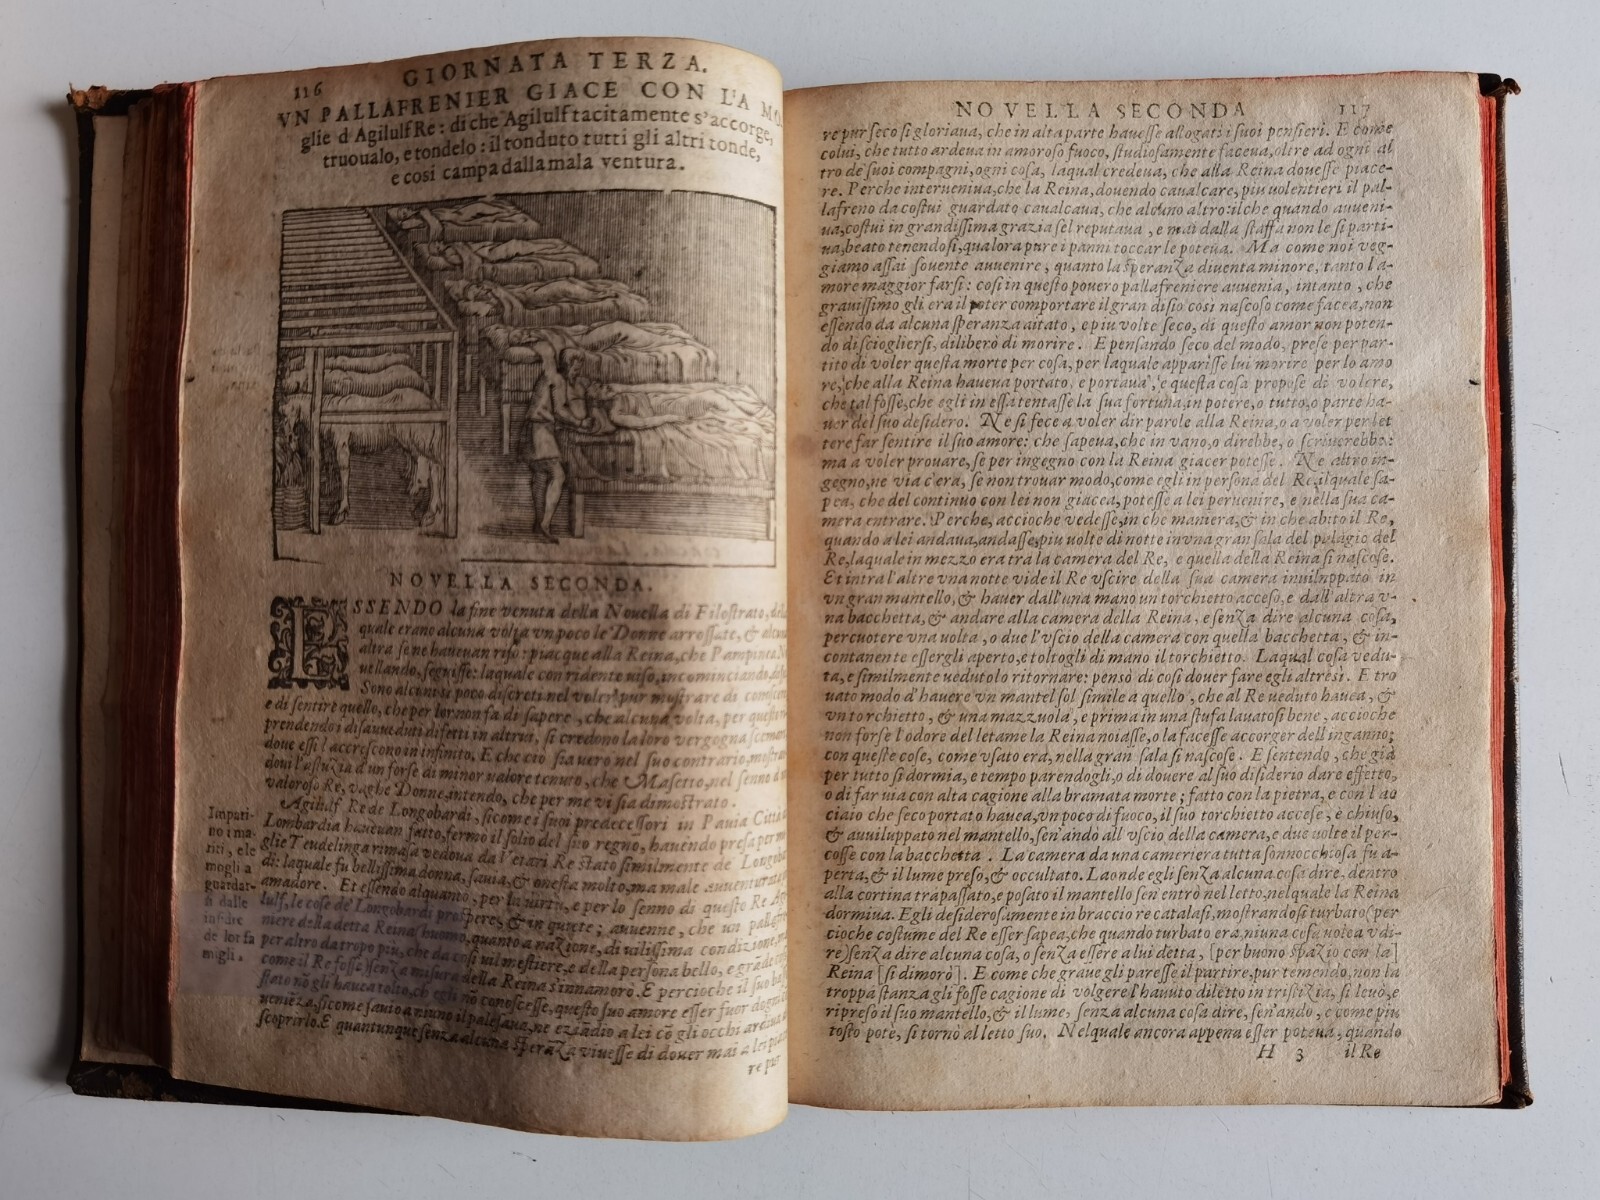 116
GIORNATA TERZA.
VN PALLAFRENIER GIACE CON L'A MO
glie d'Agilulf Re: di che Agilulf tacitamente s'accorge,
truoualo, e tondelo: il tonduto tutti gli altri tonde,
e cosi campa dalla mala ventura.
NOVELLA SECONDA.
ESSENDO la fine venuta della Nouella di Filostrato, della
quale erano alcuna volta vn poco le Donne arrossate, & alcun'
altra se ne haueuan riso: piacque alla Reina, che Pampinea
uellando, seguisse: laquale con ridente uiso, incominciando
Sono alcuni si poco discreti nel voler pur mostrare di conoscere
e di sentire quello, che per lor non fa di sapere, che alcuna volta, per questo
prendendo i disauueduti difetti in altrui, si credono la loro vergogna
doue essi l'accrescono in infinito. E che ciò sia uero nel suo contrario,
doui l'astuzia d'un forse di minor valore tenuto, che Masetto, nel senno d'
valoroso Re, vaghe Donne, intendo, che per me vi sia dimostrato.
Agilulf Re de Longobardi, sicome i suoi predecessori in Pauia Città
Lombardia haueuan fatto, fermò il solio del suo regno, hauendo presa per
glie Teudelinga rimasa vedoua da l'etari Re stato similmente de Longobardi
di: laquale fu bellissima donna, sauia, & onesta molto, ma male auuenturata
amadore. Et essendo alquanto, per la uirtù, e per lo senno di questo Re
lulf, le cose de' Longobardi prospere, & in quiete; auuenne, che un pallafre
niere della detta Reina huomo, quanto a nazione, di uilissima condizione,
per altro da troppo più, che da cosi uil mestiere, e della persona bello, e grãde
come il Re fosse) senza misura della Reina s'innamorò. E percioche il suo
stato nõ gli hauea tolto, ch egli nõ conoscesse, questo suo amore esser fuor
ueniẽza, sicome sauio a niuno il palesaua, ne eziãdio a lei cõ gli occhi ardiua
scoprirlo. E quantunque senza alcuna speraza viuesse di douer mai a lei
re pur
Impati-
no i ma-
riti, e le
mogli a
guardar-
si dalle
insidie
de lor fa
migli.
NOVELLA SECONDA 117
re pur seco si gloriaua, che in alta parte hauesse allogati i suoi pensieri. E come
colui, che tutto ardeua in amoroso fuoco, studiosamente faceua, oltre ad ogni al
tro de' suoi compagni, ogni cosa, laqual credeua, che alla Reina douesse piace-
re. Perche interueniua, che la Reina, douendo caualcare, piu uolentieri il pal-
lafreno da costui guardato caualcaua, che alcuno altro: ilche quando auueni-
ua, costui in grandissima grazia sel reputaua, e mai dalla staffa non le si parti-
ua, beato tenendosi, qualora pure i panni toccar le poteua. Ma come noi veg-
giamo assai souente auuenire, quanto la speranza diuenta minore, tanto l'a-
more maggior farsi: cosi in questo pouero pallafreniere auuenia, intanto, che
grauissimo gli era il poter comportare il gran disio cosi nascoso come facea, non
essendo da alcuna speranza aitato, e piu volte seco, di questo amor non poten-
do disciogliersi, diliberò di morire. E pensando seco del modo, prese per par-
tito di voler questa morte per cosa, per laquale apparisse lui morire per lo amo
re, che alla Reina haueua portato, e portaua, e questa cosa propose di volere,
che tal fosse, che egli in essa tentasse la sua fortuna, in potere, o tutto, o parte ha-
uer del suo desidero. Ne si fece a voler dir parole alla Reina, o a voler per let
tere far sentire il suo amore: che sapeua, che in vano, o direbbe, o scriuerebbe:
ma a voler prouare, se per ingegno con la Reina giacer potesse. Ne altro in-
gegno, ne via c'era, se non trouar modo, come egli in persona del Re, ilquale sa-
pea, che del continuo con lei non giacea, potesse a lei peruenire, e nella sua ca-
mera entrare. Perche, accioche vedesse, in che maniera, & in che abito il Re,
quando a lei andaua, andasse, piu uolte di notte in vna gran sala del palagio del
Re, laquale in mezzo era tra la camera del Re, e quella della Reina si nascose.
Et intra l'altre vna notte vide il Re vscire della sua camera inuiluppato in
vn gran mantello, & hauer dall'una mano un torchietto acceso, e dall'altra v-
na bacchetta, & andare alla camera della Reina, e senza dire alcuna cosa,
percuotere vna uolta, o due l'vscio della camera con quella bacchetta, & in-
contanente essergli aperto, e toltogli di mano il torchietto. Laqual cosa vedu-
ta, e similmente vedutolo ritornare: pensò di cosi douer fare egli altresì. E tro
uato modo d'hauere vn mantel sol simile a quello, che al Re ueduto hauea, &
vn torchietto, & una mazzuola, e prima in una stufa lauatosi bene, accioche
non forse l'odore del letame la Reina noiasse, o la facesse accorger dell'inganno;
con queste cose, come vsato era, nella gran sala si nascose. E sentendo, che già
per tutto si dormia, e tempo parendogli, o di douere al suo disiderio dare effetto,
o di far uia con alta cagione alla bramata morte; fatto con la pietra, e con l'ac
ciaio che seco portato hauea, vn poco di fuoco, il suo torchietto accese, e chiuso,
& auuiluppato nel mantello, sen'andò all'vscio della camera, e due uolte il per-
cosse con la bacchetta. La camera da una cameriera tutta sonnocchiosa fu a-
perta, & il lume preso, & occultato. Laonde egli senza alcuna cosa dire, dentro
alla cortina trapassato, e posato il mantello sen'entrò nel letto, nel quale la Reina
dormiua. Egli desiderosamente in braccio recatalasi, mostrandosi turbato (per
cioche costume del Re esser sapea, che quando turbato era, niuna cosa volea vdi-
re) senza dire alcuna cosa, o senza essere a lui detta, [per buono spazio con la]
Reina [si dimorò]. E come che graue gli paresse il partire, pur temendo, non la
troppa stanza gli fosse cagione di volgere l'hauuto diletto in tristizia, si leuò, e
ripreso il suo mantello, & il lume, senza alcuna cosa dire, sen'andò, e come piu
tosto potè, si tornò al letto suo. Nel quale ancora appena esser poteua, quando
H 3 il Re